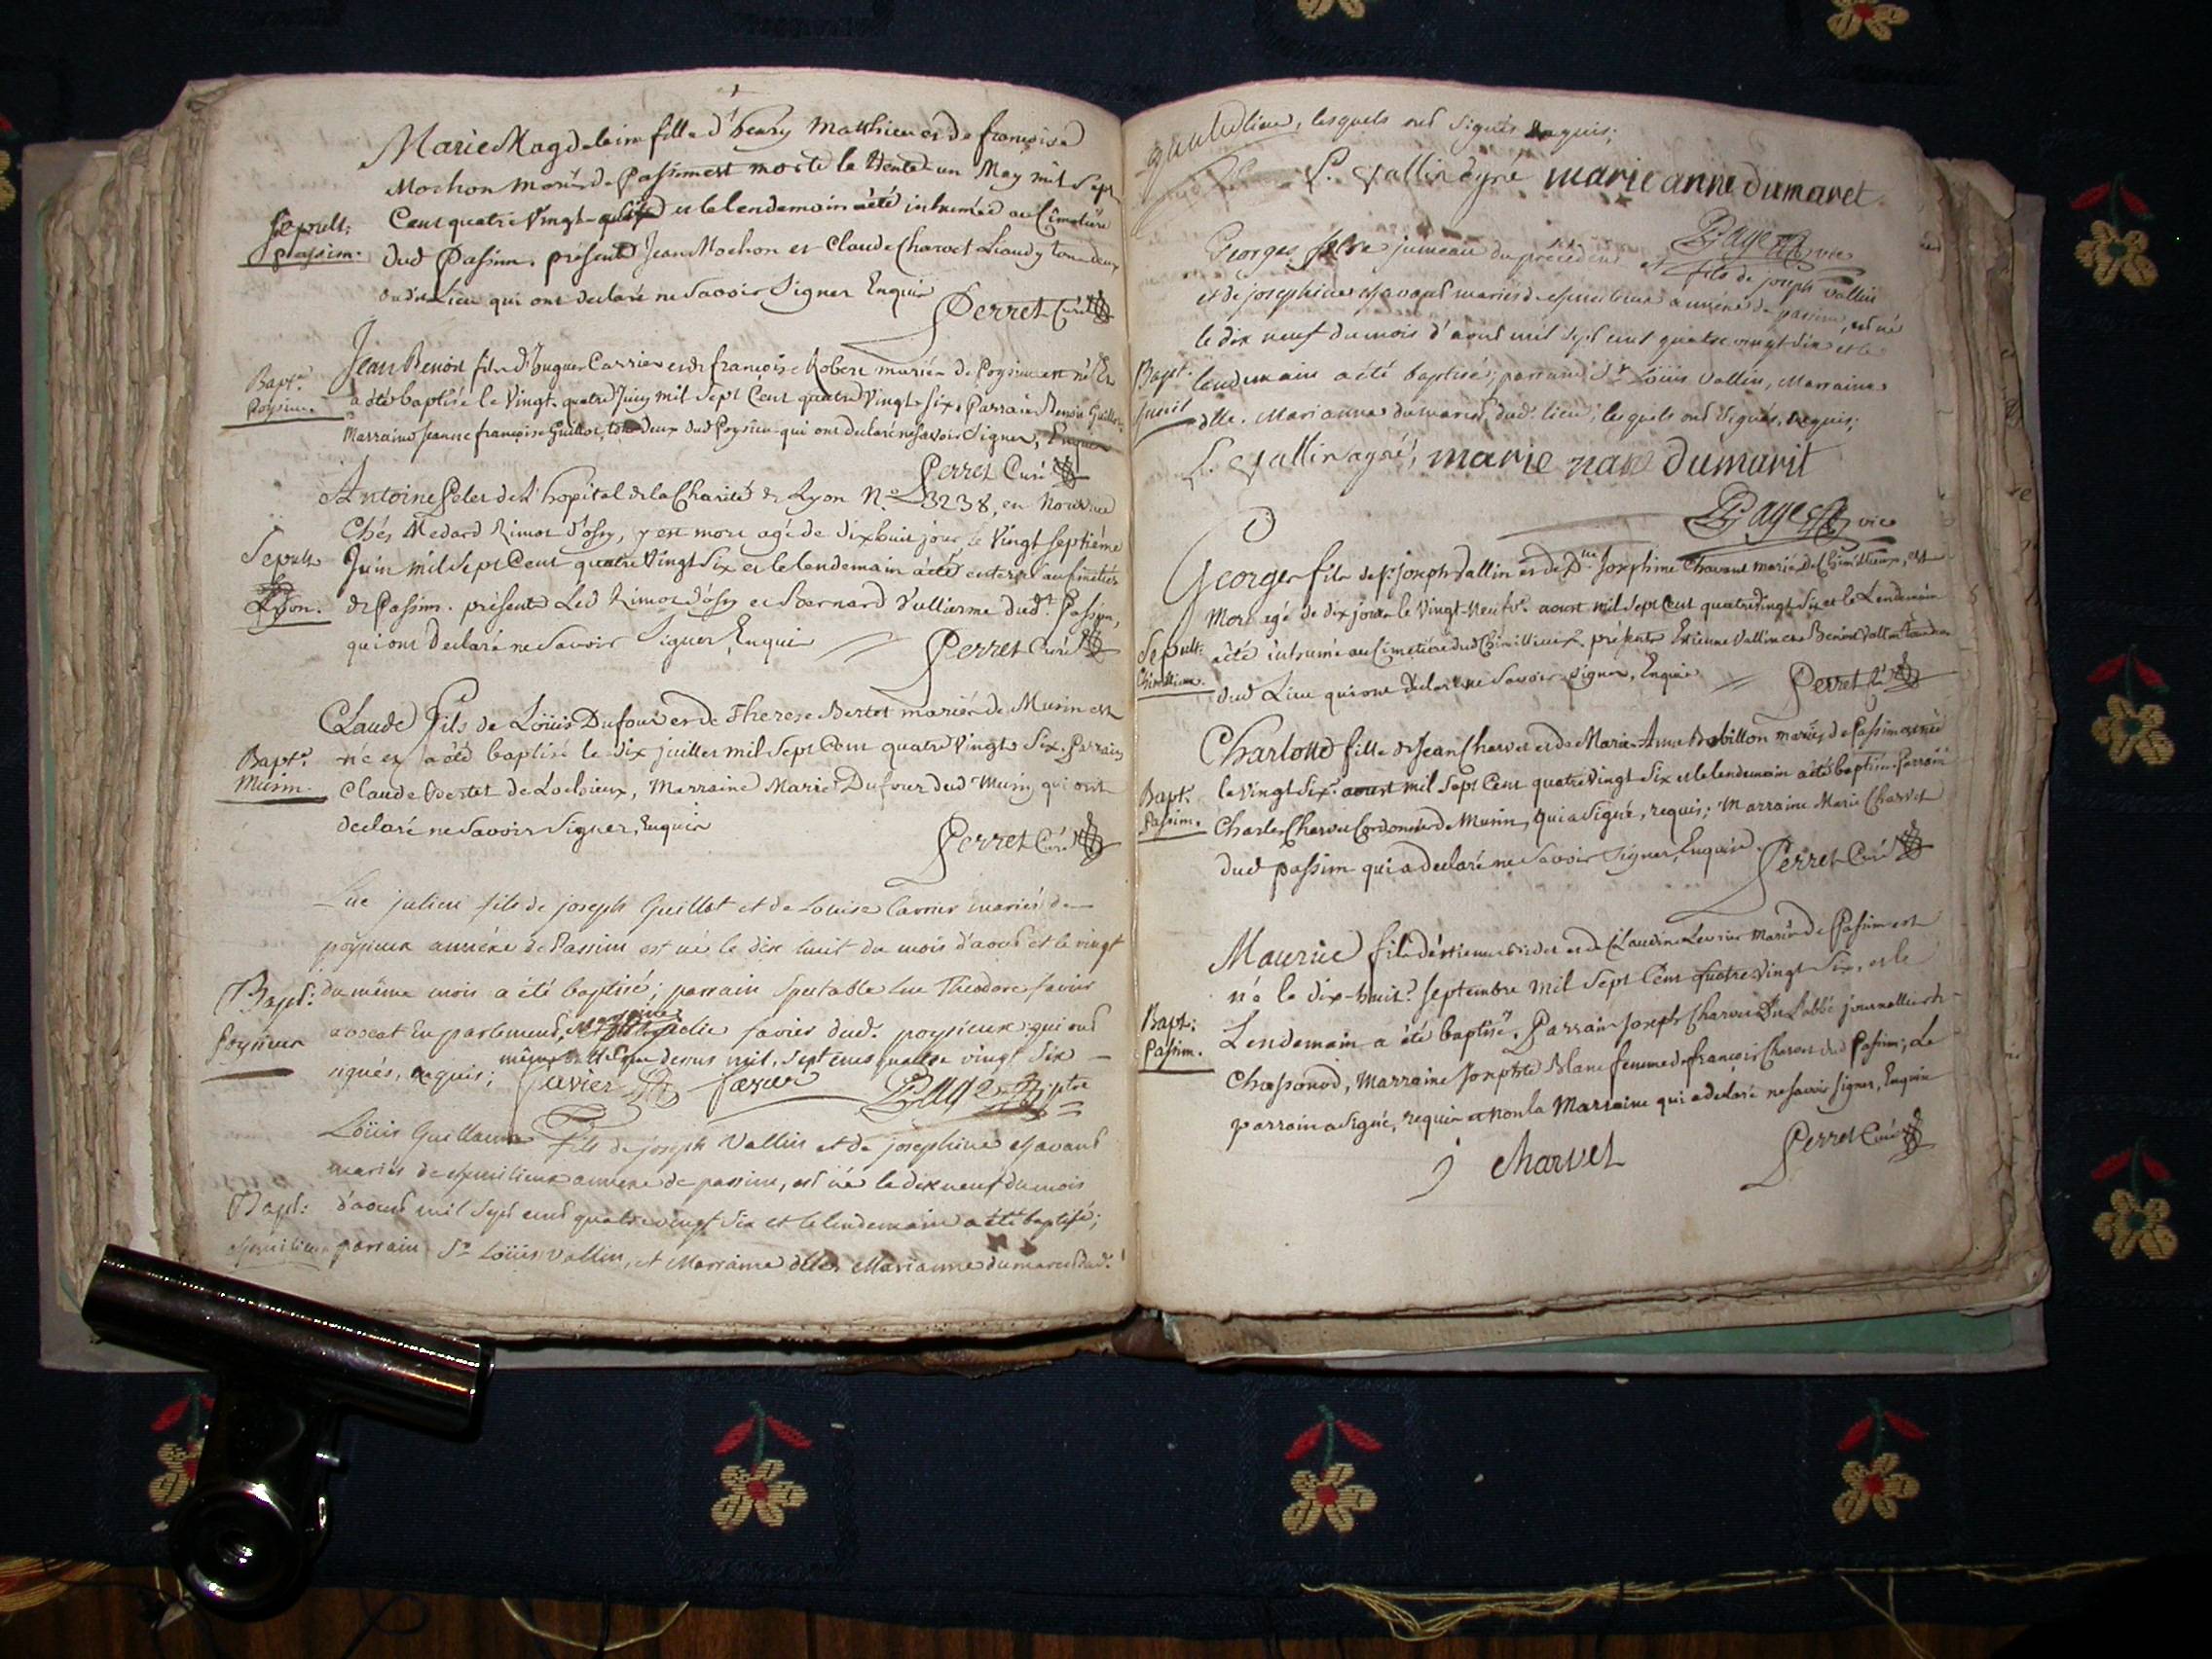 Marie Magdeleine fille d'henry Matthieu et de francoise
Mochon mariés de Passim est morte le trente un May mil Sept
Sepult: Cent quatre Vingt et le lendemain a été inhumée au Cimetiére
Passim. dud Passim. présents Jean Mochon et Claude Charvet tous deux
dudit Lieu qui ont declaré ne Savoir Signer Enquis
Perret Curé
Jean Benoit fils d'hugues Carrier et de francoise Robert mariés de Poysieu est né Et
Bapt. a été baptisé le Vingt-quatre Juin mil Sept Cent quatre Vingt Six. Parrain Benoit Guillot
Poysieu. Marraine Jeanne francoise Guillot, tous deux dud Poysieu qui ont declaré ne savoir Signer, Enquis
Perret Curé
Antoine de l'hopital de la Charité de Lyon N.° 3238, en Nourrice
Chés Medard Rimot d'ossy, y est mort agé de dix huit jours le Vingt Septiéme
Sepult. Juin mil Sept Cent quatre Vingt Six et le lendemain a été enterré au Cimetiére
Lyon. de Passim. présents Led Rimot d'ossy et Bernard Vullierme dud.t Passim,
qui ont declaré ne Savoir Signer, Enquis
Perret Curé
Claude fils de Löuis Dufour et de Therese Bertet mariés de Musin est
Bapt. né et a été baptisé le dix juillet mil Sept Cent quatre Vingt Six. Parrain
Musin. Claude Bertet de Lochieux, Marraine Marie Dufour dud Musin, qui ont
declaré ne Savoir Signer, Enquis
Perret Curé
Luc julien fils de joseph Guillot et de Louise Carrier mariés de
poysieux annéxe de Passim est né le dix huit du mois d'aout et le vingt
Bapt: du même mois a été baptisé; parrain Spectable Luc Theodore favier
Poysieux avocat En parlement, Marraine favier dud. poysieux qui ont
même que dessus mil Sept cent quatre vingt Six
signés, requis; favier favier Page
Löuis Guillaume fils de joseph Vallin et de josephine Chavant
mariés de annexe de passim, est né le dix neuf du mois
Bapt: d'aout mil Sept cent quatre vingt Six et le lendemain a été baptisé;
parrain Sr Löuis Vallin, et Marraine dlle Marianne dumaret dud.
lieu, lesquels ont Signés requis;
L. Vallin ayné marie anne dumaret
Page vic
Georges frere jumeau du précédent et fils de joseph Vallin
et de josephine Chavant mariés de annexe de passim, est né
le dix neuf du mois d'aout mil Sept cent quatre vingt Six et le
Bapt. lendemain a été baptisé; parrain Sr Löuis Vallin, Marraine
dlle. Marianne dumaret, dud. lieu, lesquels ont Signés, requis;
L. Vallin ayné, marie nane dumarit
Page vic
Georges fils de Sr joseph Vallin et de Dlle Josephine Chavant mariés de Chimillieux, est
Mort agé de dix jours le Vingt-Neuf aoust mil Sept Cent quatre Vingt Six et le Lendemain
Sepult: a été inhumé au Cimetiére dud Chimillieux présents Etienne Vallin et Benoit Vallin tous deux
Chimillieux. dud Lieu qui ont declaré ne Savoir Signer, Enquis
Perret Cé
Charlotte fille de Jean Charvet et de Marie-Anne Bobillon mariés de Passim est née
Bapt. le Vingt Six aoust mil Sept Cent quatre Vingt Six et le lendemain a été baptisée Parrain
Passim. Charles Charvet Cordonnier de Musin, qui a Signé, requis; Marraine Marie Charvet
dud passim qui a declaré ne Savoir Signer, Enquise
Perret Curé
Maurice fils d'étienne et de Claudine mariés de Passim est
né le dix-huit Septembre mil Sept Cent Quatre Vingt Six, et le
Bapt: Lendemain a été baptisé. Parrain Joseph Charvet Dit l'abbé journallier de
Passim. Chassonod, Marraine Josephte Blanc femme de francois Charvet dud Passim; Le
parrain a Signé, requis et non la Marraine qui a declaré ne savoir signer, Enquise
j charvet
Perret Curé